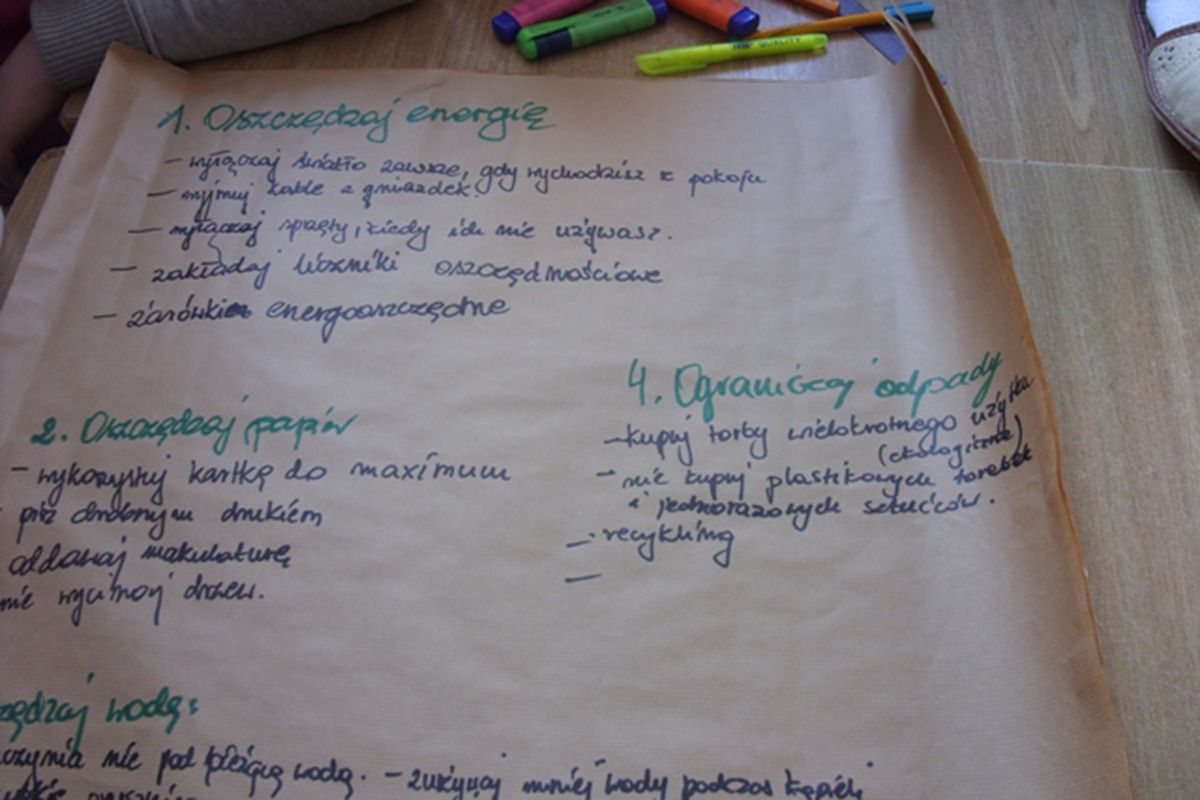 1. Oszczędzaj energię
- wyłączaj światło zawsze, gdy wychodzisz z pokoju
- wyjmuj kable z gniazdek.
- wyłączaj sprzęty, kiedy ich nie używasz.
- zakładaj liczniki oszczędnościowe
- żarówki energooszczędne
2. Oszczędzaj papier
- wykorzystuj kartkę do maximum
- pisz drobnym drukiem
oddawaj makulaturę
nie wycinaj drzew.
4. Ograniczaj odpady
- kupuj torby wielokrotnego użytku
(ekologiczne)
- nie kupuj plastikowych torebek
i jednorazowych sztućców.
- recykling
-
zędzaj wodę:
czynia nie pod bieżącą wodą. - zużywaj mniej wody podczas kąpieli